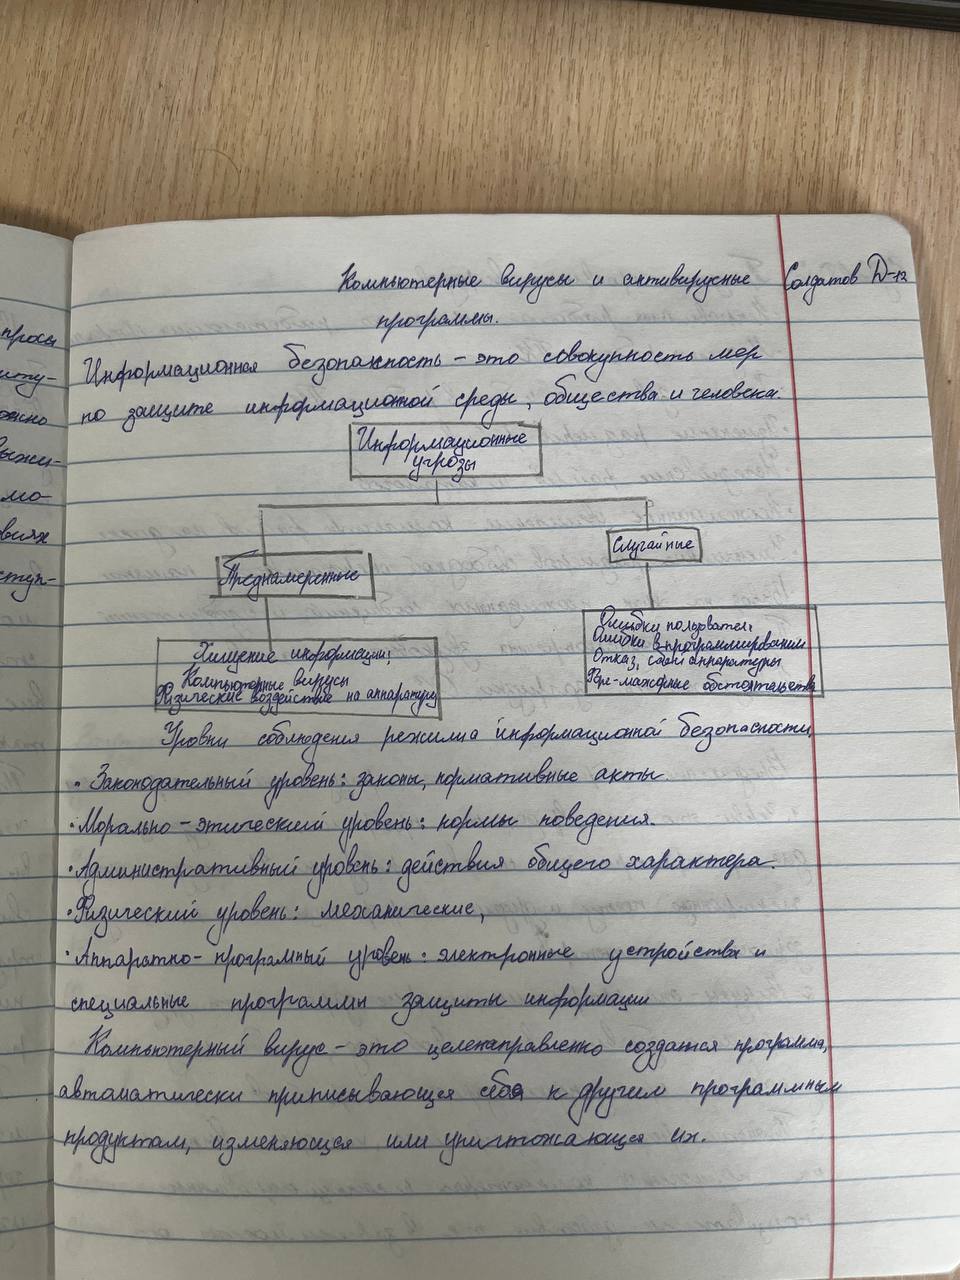 Компьютерные вирусы и антивирусные Солдатов Д-12
программы.
Информационная безопасность – это совокупность мер
по защите информационной среды, общества и человека.
Информационные
угрозы
Случайные
Преднамеренные
Хищение информации;
Компьютерные вирусы
Физические воздействие на аппаратуру
Ошибки пользователя
Ошибки в программировании
Отказ, сбои аппаратуры
Форс-мажорные обстоятельства
Уровни соблюдения режима информационной безопасности,
• Законодательный уровень: законы, нормативные акты
• Морально-этический уровень: нормы поведения.
• Административный уровень: действия общего характера.
• Физический уровень: механические,
• Аппаратно-програмный уровень: электронные устройства и
специальные программы защиты информации
Компьютерный вирус – это целенаправленно создатся программа,
автоматически приписывающая себя к другим программным
продуктам, изменяющся или уничтожающая их.
просы
иту-
ожно
выжи-
мо-
овиях
ступ-